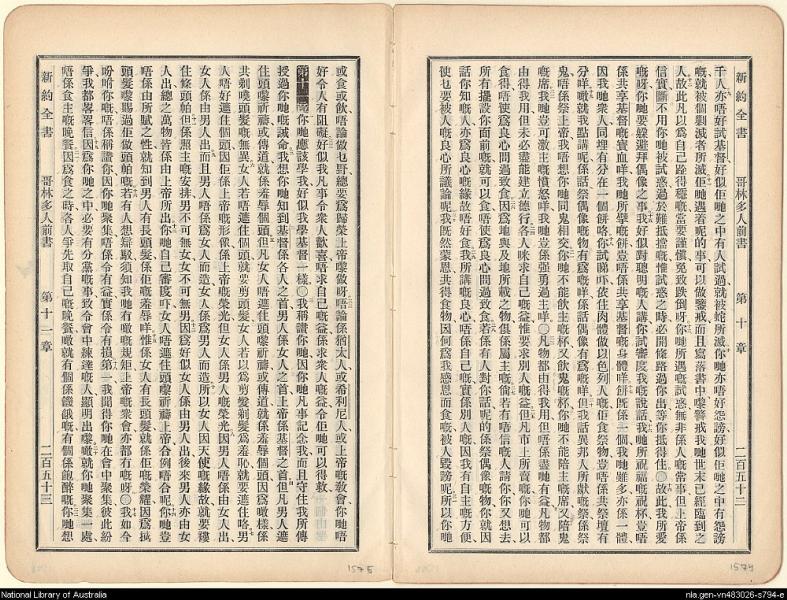 新約全書
哥林多人前書
第十章
二百五十二
千人亦唔好試基督好似佢哋之中有人試過就被蛇所滅你哋亦唔好怨謗好似佢哋之中有怨謗
嘅就被個剿滅者所滅佢哋遇着呢的事可以做鑒戒而且寫落書中嚟警戒我哋世末已經臨到之
人故此凡以爲自己跲得穩嘅當要謹愼免致跌倒呀你哋所遇嘅試惑無非係人嘅常事但上帝係
信實斷不用你哋被試惑過於難抵擋嘅惟試惑之時必開條路過你出等你抵得住○故此我所愛
嘅呀你哋要躱避拜偶像之事我好似對聰明嘅人講你試審度我嘅說話我哋所祝福嘅祝杯豈唔
係共享基督嘅寶血咩我哋所擘嘅餅豈唔係共享基督嘅身體咩餅旣係一個我哋雖多亦係一體
因我哋衆人同埋有分在一個餅咯你試睇吓依住肉體做以色列人嘅佢食祭物豈唔係共祭壇有
分咩噉就我點講呢係話祭偶像嘅物有爲嘅咩係話偶像有爲嘅咩但我話異邦人所獻嘅祭係祭
鬼唔係祭上帝我唔想你哋同鬼相交你哋不能飲主嘅杯又飲鬼嘅杯你哋不能陪主嘅席又陪鬼
嘅席我哋豈可激主嘅憤怒咩我哋豈係强勇過主咩○凡物都由得我用但唔係盡哋有益凡物都
由得我用但未必盡能建立德行各人咪求自己嘅益惟要求別人嘅益但凡市上所賣嘅你哋可以
食得唔使爲良心間過致食因爲地與及地所載之物俱係屬主嘅倘若有唔信嘅人請你你又想去
所有擺設你面前嘅就可以食唔使爲良心間過致食若係有人對你話呢的係祭偶像嘅物你就因
話你知嘅人亦爲良心嘅緣故唔好食我所講嘅良心唔係自己嘅實係別人嘅因我有自主嘅方便
使乜要被人嘅良心所議論呢我旣然蒙恩共得食物因何爲我感恩而食嘅被人毀謗呢所以你哋
1574
或食或飲唔論做乜野總要爲歸榮上帝嚟做呀唔論係猶太人或希利尼人或上帝嘅敎會你哋唔
好令人有阻礙好似我凡事令衆人歡喜唔求自己嘅益係求衆人嘅益令佢哋可以得救
第十一章你哋應該學我好似我學基督一樣○我稱讚你哋因你哋凡事記念我而且守住我所傳
授過你哋嘅誡命我想你哋知到基督係各人之首男人係女人之首上帝係基督之首但凡男人遮
住頭嚟祈禱或傳道就係羞辱個頭但凡女人唔遮住頭嚟祈禱或傳道就係羞辱個頭因爲噉樣係
共剃嘵頭髮嘅無異女人若唔遮住個頭就要剪頭髮女人若以爲剪髮剃髮爲羞恥就要遮住咯男
人唔好遮住個頭因佢係上帝嘅形像係上帝嘅榮光但女人係男人嘅榮光因男人唔係由女人出
女人係由男人出而且男人唔係爲女人而造女人係爲男人而造所以女人因天使嘅緣故就要䅲
住條頭帕但係照主嘅安排男不可無女女不可無男因爲好似女人係由男人出後來男人亦由女
人出總之萬物皆係由上帝所出你哋自己審度吓女人唔遮住頭嚟祈禱上帝合例唔合呢你哋豈
唔係由所賦之性就知到男人有長頭髮係佢嘅羞辱咩惟係女人有長頭髮就係佢嘅榮耀因爲俾
頭髮嚟賜過佢做頭帕嘅若有人想辯駁須知我哋有噉嘅規矩上帝嘅衆會亦都冇嘅呀○我如今
吩咐你嘅唔係稱讚你因你哋聚集唔係令有益實係令有損第一我聞得你哋在會中聚集彼此紛
爭我都畧畧信因爲你哋之中必要有分黨嘅事致令會中練達嘅人顯明出嚟噉就你哋聚集一處
唔係食主嘅晚餐因爲食之時各人爭先取自己嘅晚餐噉就有個係饑餓嘅有個係飽醉嘅你哋想
新約全書
哥林多人前書
第十一章
二百五十三
1575
National Library of Australia
nla.gen-vn483026-s794-e